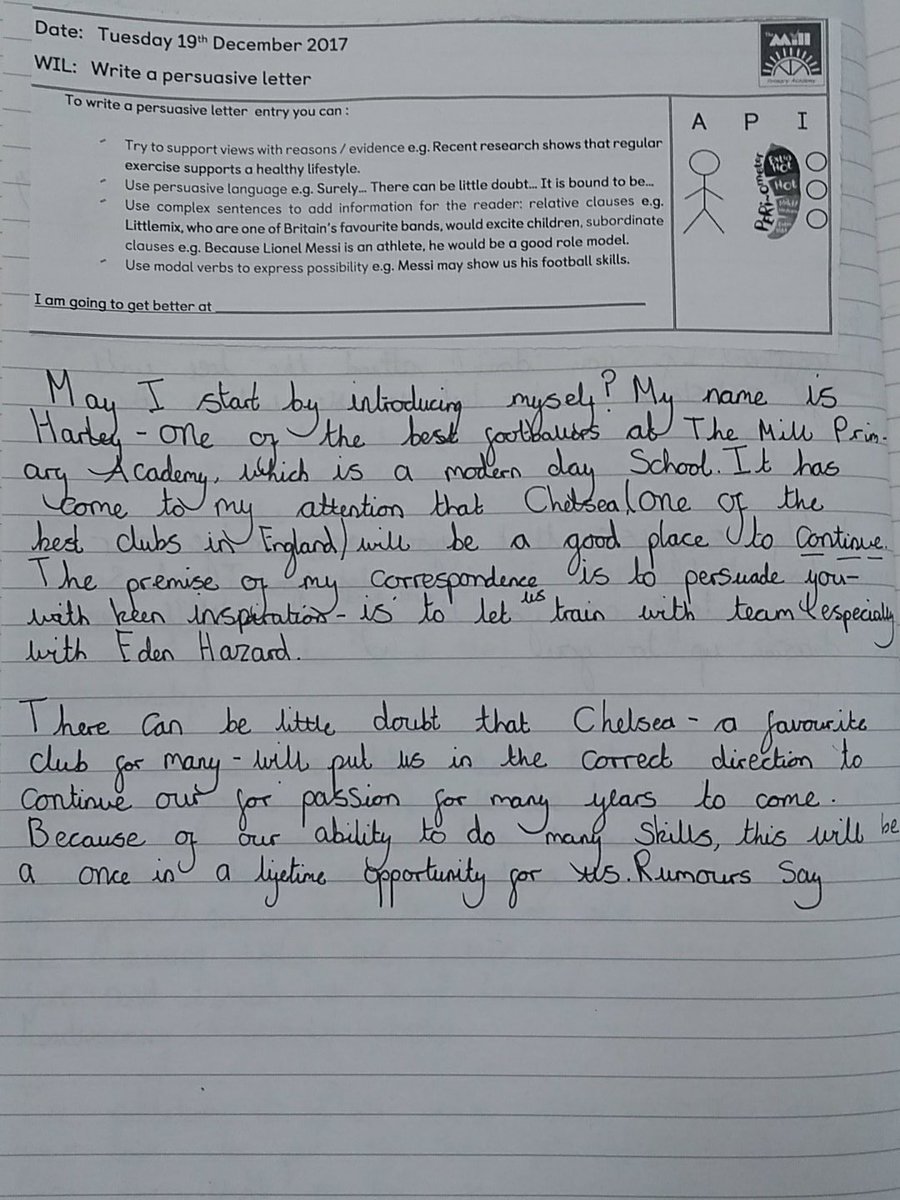 Date: Tuesday 19th December 2017
WIL: Write a persuasive letter
The Mill
Primary Academy
To write a persuasive letter entry you can :
- Try to support views with reasons / evidence e.g. Recent research shows that regular
exercise supports a healthy lifestyle.
- Use persuasive language e.g. Surely... There can be little doubt... It is bound to be...
- Use complex sentences to add information for the reader: relative clauses e.g.
Littlemix, who are one of Britain's favourite bands, would excite children, subordinate
clauses e.g. Because Lionel Messi is an athlete, he would be a good role model.
- Use modal verbs to express possibility e.g. Messi may show us his football skills.
I am going to get better at
A P I
Extra Hot
Hot
May I start by introducing myself? My name is
Harley - one of the best footballers at The Mill Prim-
ary Academy, which is a modern day School. It has
come to my attention that Chelsea (one of the
best clubs in England) will be a good place to continue.
The premise of my correspondence is to persuade you-
with keen inspiration - is to let us train with team (especially
with Eden Hazard.
There can be little doubt that Chelsea - a favourite
club for many - will put us in the correct direction to
continue our for passion for many years to come.
Because of our ability to do many skills, this will be
a once in a lifetime opportunity for us. Rumours say